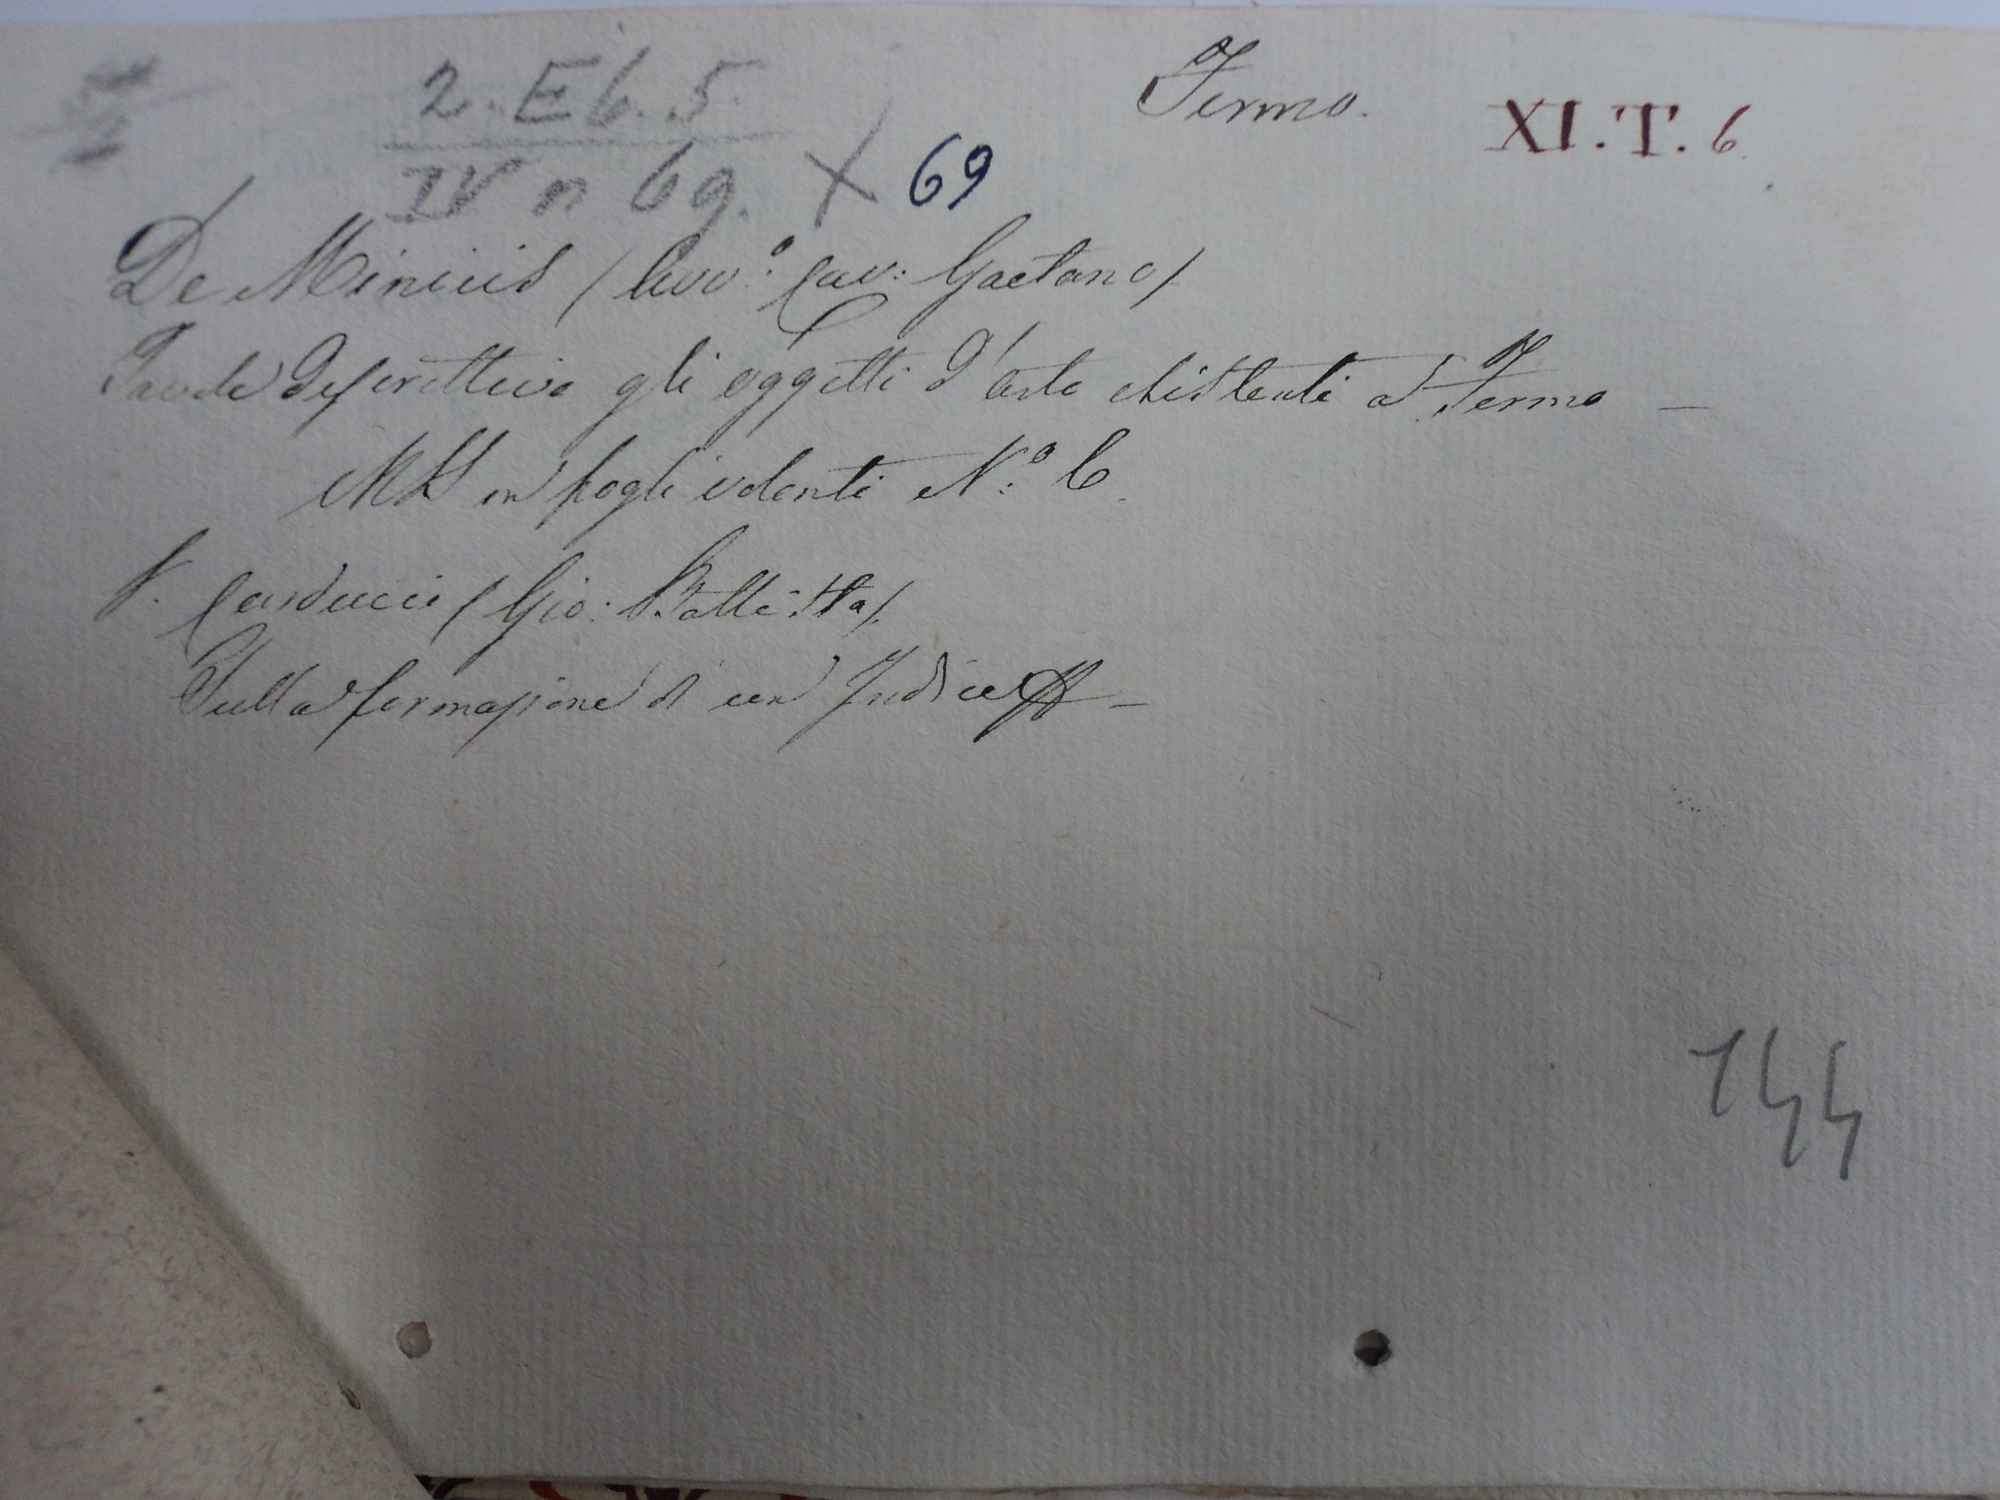 2. E 6. 5.
Fermo.
XI. T. 6
IV n 69. X 69
De Minicis / Avv.º Cav: Gaetano /
Tavole descrittive gli oggetti d'arte esistenti a Fermo —
MS in fogli volanti N.º 6.
V. Carducci / Gio: Battista /.
Sulla formazione di un Indice
144